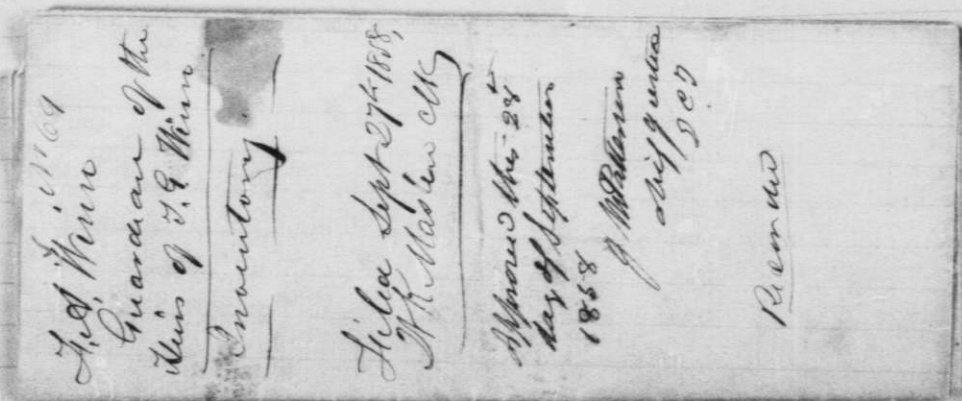 No 69
Winn
Guardian of the
Heirs of T. G. Winn
Inventory
Filed Sept 27th 1858,
W K Maslin Clk
Approved this 28th
day of September
1858
J Patterson
Chief Justice
D C T